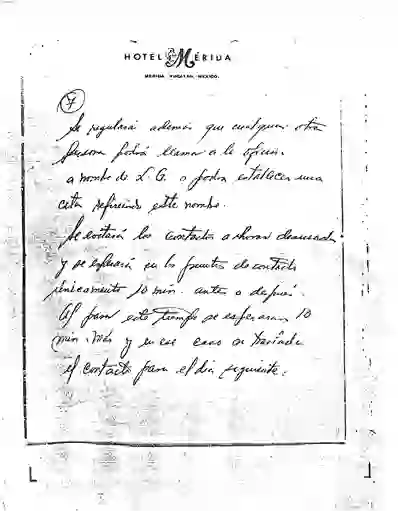 HOTEL MÉRIDA
MERIDA YUCATAN, MEXICO.
7
Se regulará además que cualquier otra
persona podrá llamar a la oficina
a nombre de L. G. o podra establecer una
cita refiriendo este nombre.
Se evitará los contactos a horas
y se esperará en los puntos de contacto
únicamente 10 min. antes o después.
Al pasar este tiempo se esperaran 10
min. más y en ese caso se
el contacto para el dia siguiente.